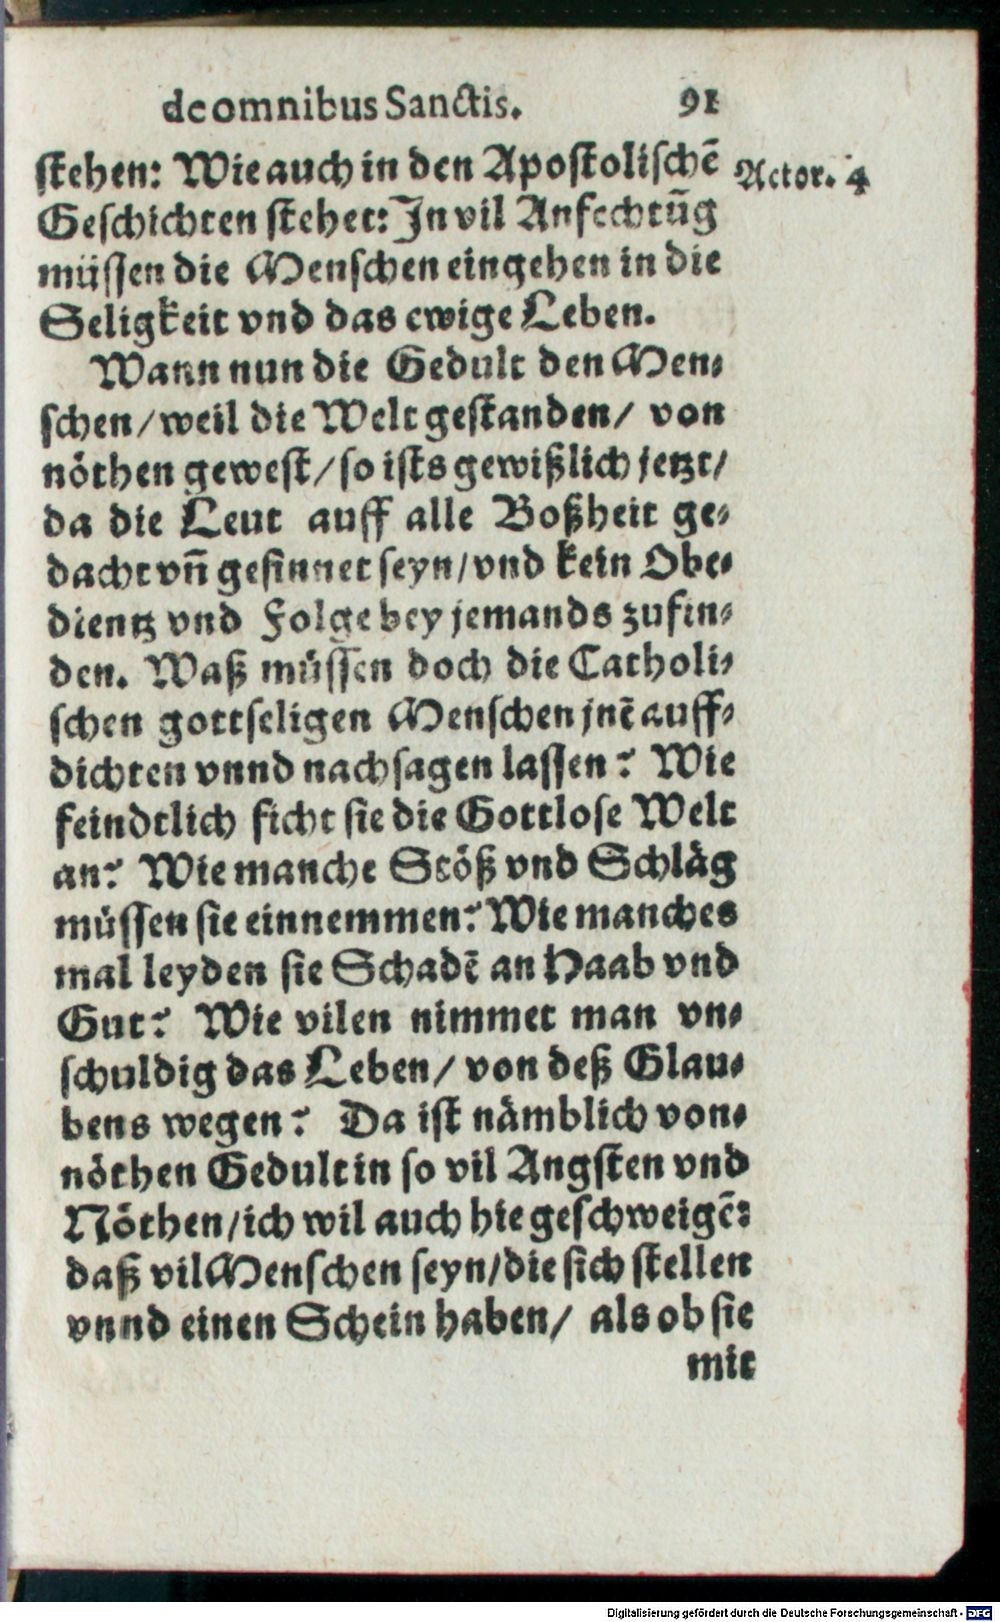 de omnibus Sanctis. 91
stehen: Wie auch in den Apostolischē Actor. 4
Geschichten stehet: In vil Anfechtūg
müssen die Menschen eingehen in die
Seligkeit vnd das ewige Leben.
Wann nun die Gedult den Men⸗
schen/ weil die Welt gestanden/ von
nöthen gewest/ so ists gewißlich jetzt/
da die Leut auff alle Boßheit ge⸗
dacht vñ gesinnet seyn/ vnd kein Obe⸗
dientz vnd Folge bey jemands zufin⸗
den. Waß müssen doch die Catholi⸗
schen gottseligen Menschen jnē auff⸗
dichten vnnd nachsagen lassen? Wie
feindtlich ficht sie die Gottlose Welt
an? Wie manche Stöß vnd Schläg
müssen sie einnemmen? Wie manches
mal leyden sie Schadē an Haab vnd
Gut? Wie vilen nimmet man vn⸗
schuldig das Leben/ von deß Glau⸗
bens wegen? Da ist nämblich von⸗
nöthen Gedult in so vil Angsten vnd
Nöthen/ ich wil auch hie geschweigē:
daß vil Menschen seyn/ die sich stellen
vnnd einen Schein haben/ als ob sie
mit
Digitalisierung gefördert durch die Deutsche Forschungsgemeinschaft - DFG